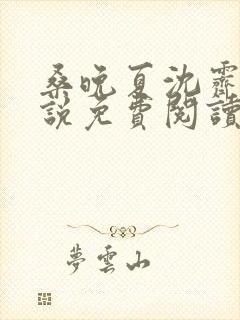 桑晚夏沈霽
說免費閱讀
夢雲山